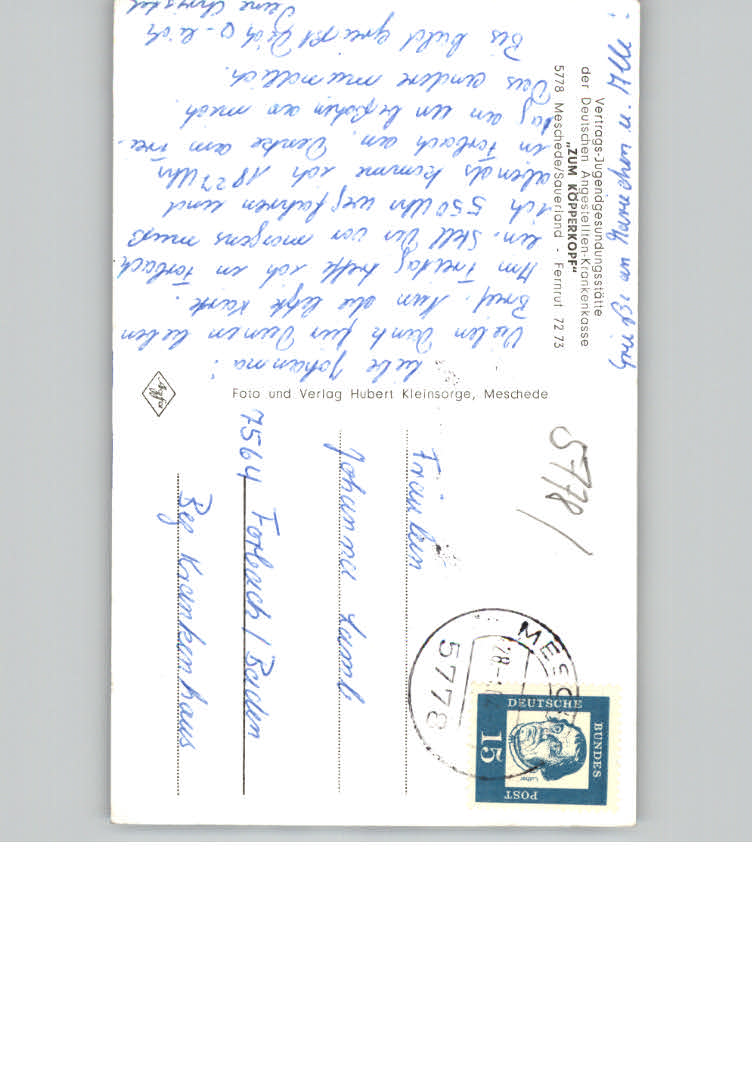 Vertrags-Jugendgesundungsstätte
der Deutschen Angestellten-Krankenkasse
„ZUM KÖPPERKOPF"
5778 Meschede/Sauerland - Fernruf 72 73
Liebe Johanna!
Vielen Dank für Deinen lieben
Brief. Nun die letzte Karte.
Am Freitag treffe ich in Forbach
ein. Stell Dir vor morgens muß
ich 550 Uhr wegfahren und
abends komme ich 1827 Uhr
in Forbach an. Denke am Frei-
tag an un
Das andere mündlich.
Bis bald grüßt Dich
Deine Christel
Foto und Verlag Hubert Kleinsorge, Meschede
Agfa
5778/
Fräulein
Johanna
7564 Forbach / Baden
Krankenhaus
MESCH
5778
DEUTSCHE
BUNDES
POST
15
Luther